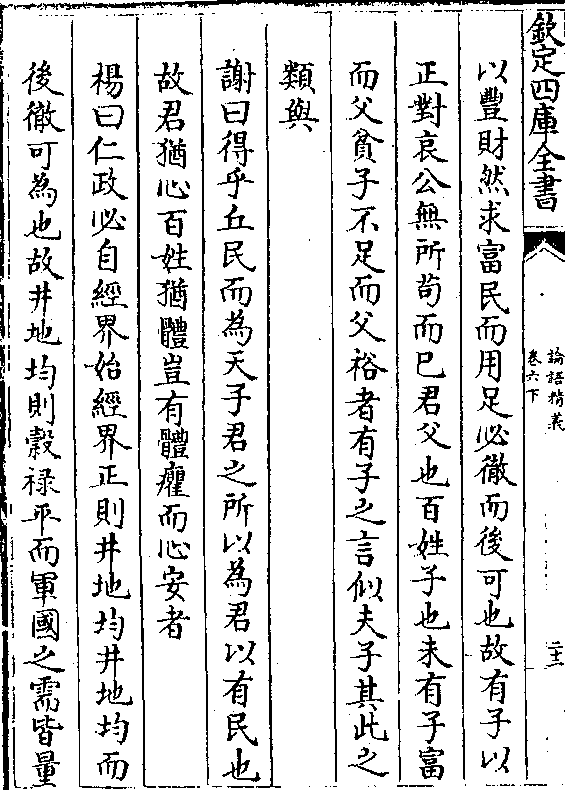 欽定四庫全書
論語精義
卷六下
二十二
以豐財然求富民而用足必徹而後可也故有子以
正對哀公無所苟而已君父也百姓子也未有子富
而父貧子不足而父裕者有子之言似夫子其此之
類與
謝曰得乎丘民而為天子君之所以為君以有民也
故君猶心百姓猶體豈有體癯而心安者
楊曰仁政必自經界始經界正則井地均井地均而
後徹可為也故井地均則穀禄平而軍國之需皆量